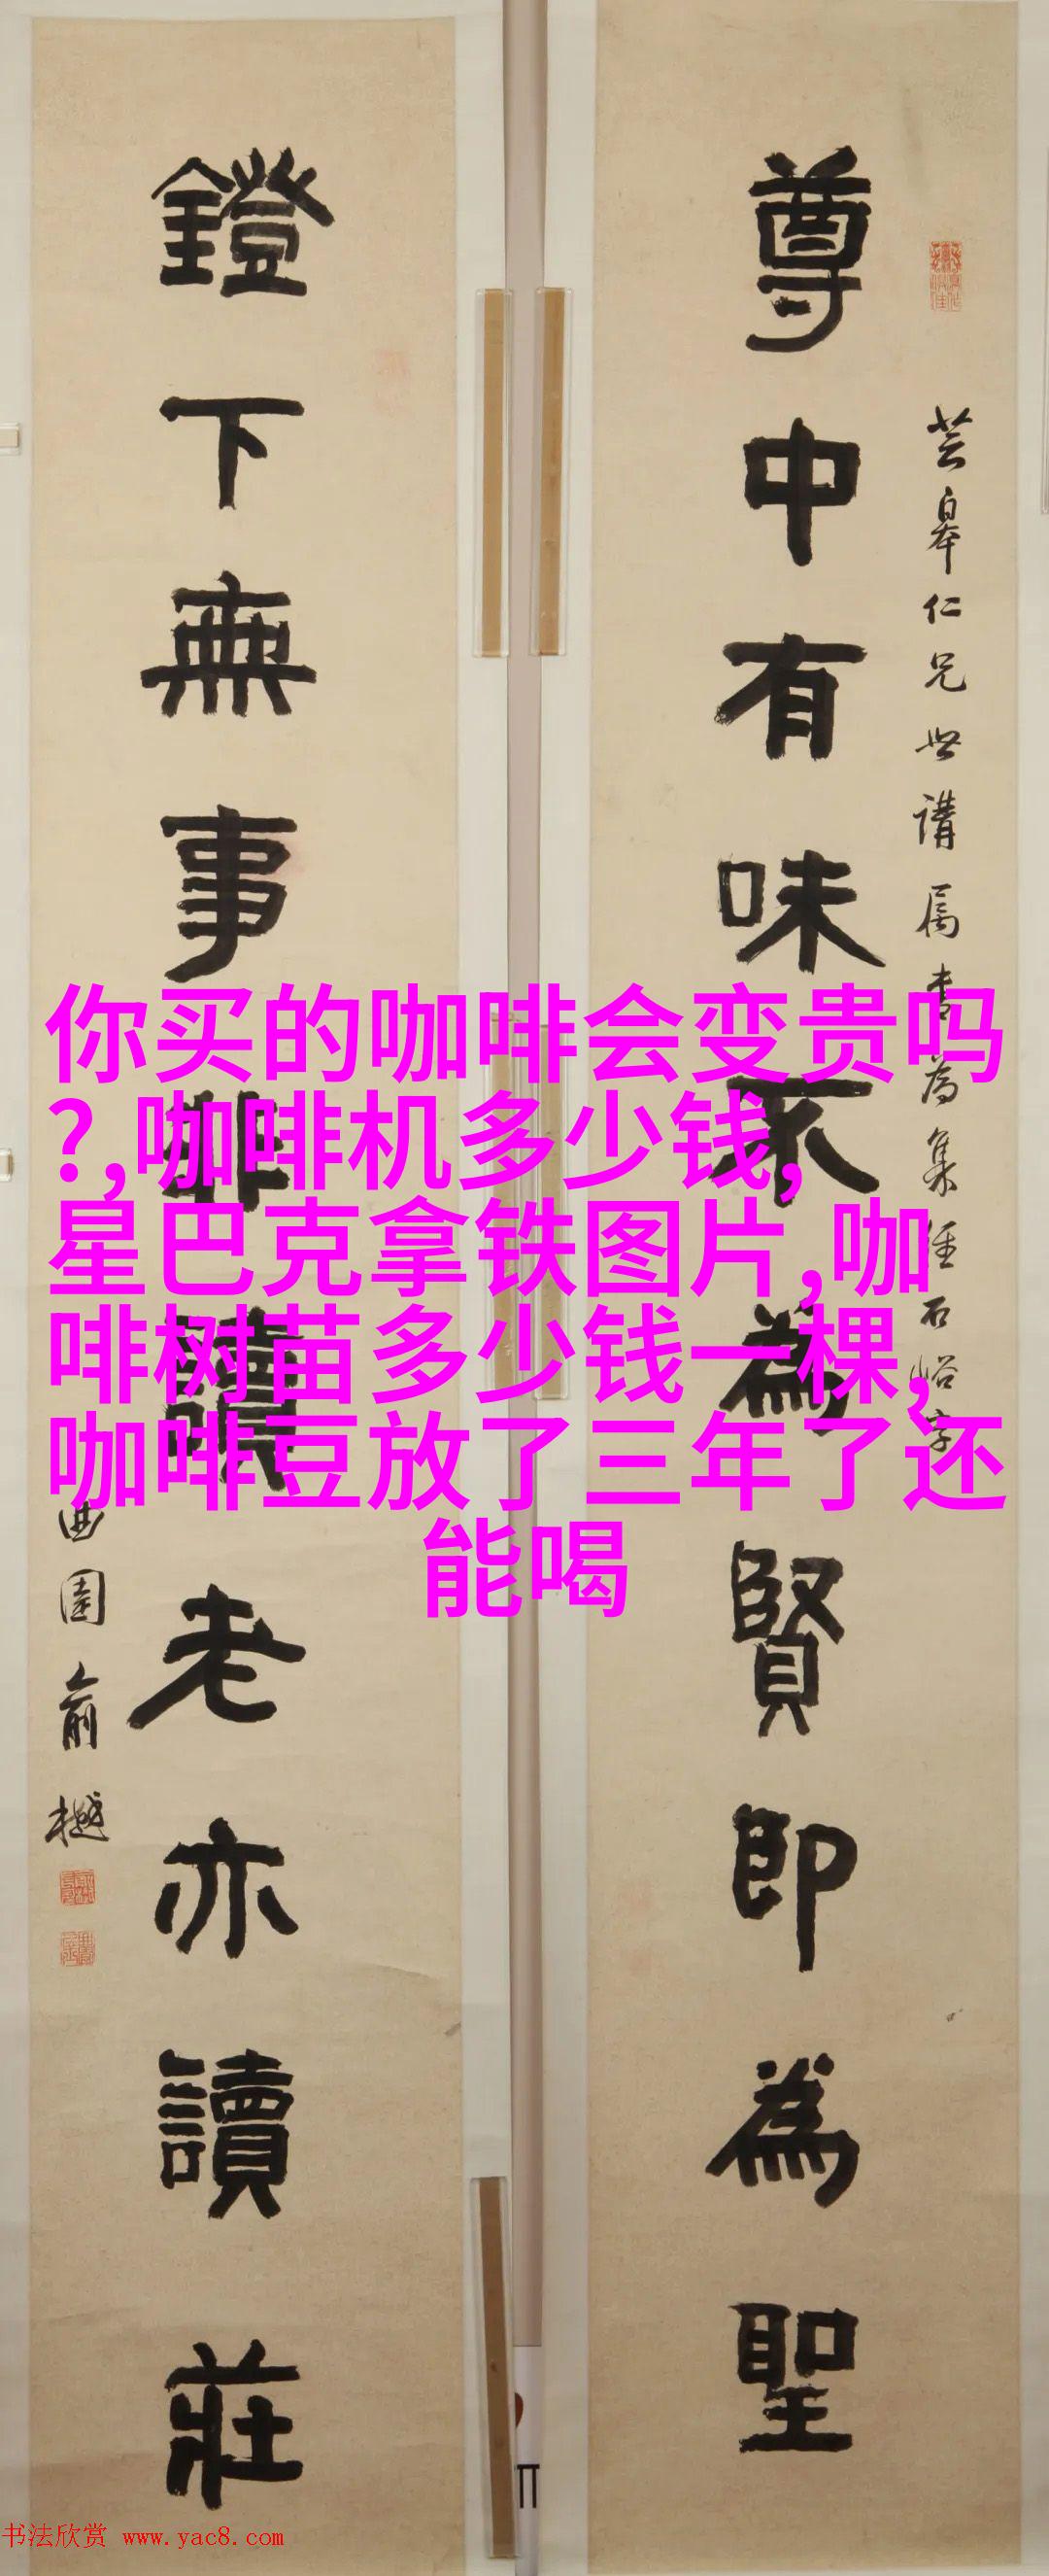 芸皋仁兄世講属書為集經石峪字
尊中有味不為賢即為聖
鐙下無事非讀老亦讀莊
曲園俞樾
你买的咖啡会变贵吗
?,咖啡机多少钱,
星巴克拿铁图片,咖
啡树苗多少钱一棵,
咖啡豆放了三年了还
能喝
书法欣赏 www.yac8.com